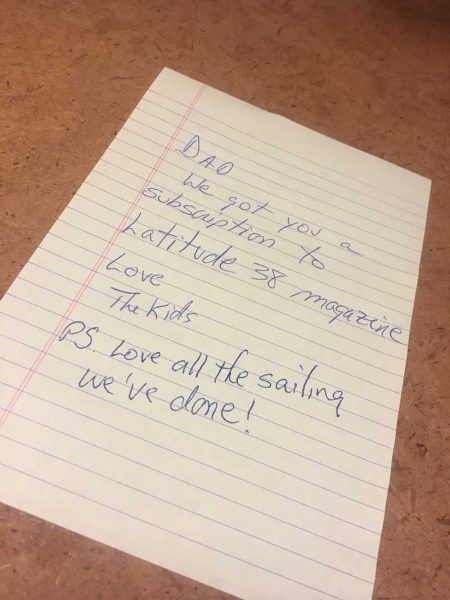 DAD
We got you a
subscription to
Latitude 38 magazine
Love
The Kids
PS. Love all the sailing
we've done!